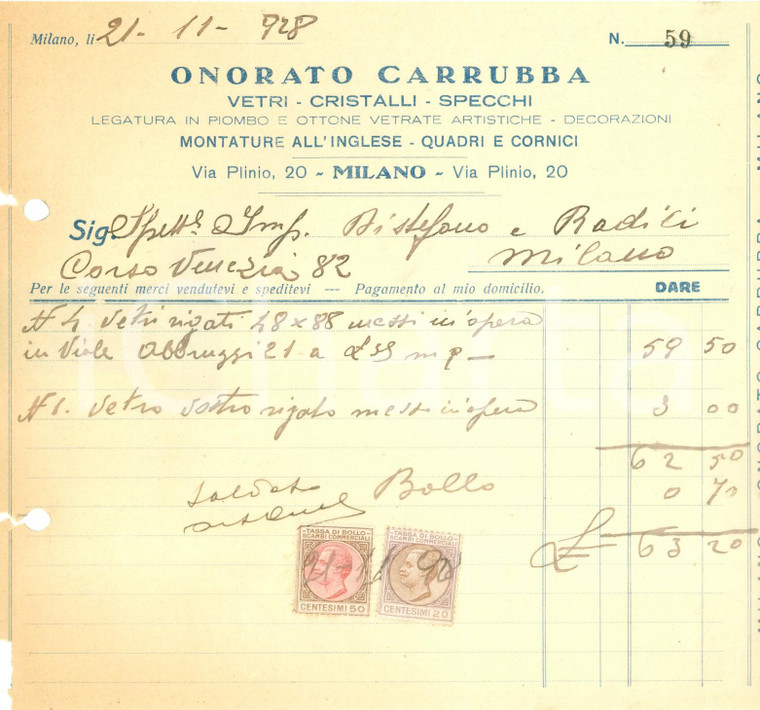 Milano, li 21 - 11 - 928 N. 59
ONORATO CARRUBBA
VETRI - CRISTALLI - SPECCHI
LEGATURA IN PIOMBO E OTTONE VETRATE ARTISTICHE - DECORAZIONI
MONTATURE ALL'INGLESE - QUADRI E CORNICI
Via Plinio, 20 - MILANO - Via Plinio, 20
Sig. Spett. Imp. Distefano e Radici
Corso Venezia 82 Milano
Per le seguenti merci vendutevi e speditevi — Pagamento al mio domicilio. DARE
N 4 vetri rigati 48 x 88 messi in opera
in Viale Abbruzzi 21 a £ 35 m q — 59 50
N 1. vetro vostro rigato messo in opera 3 00
62 50
saldato Bollo 0 70
£ 63 20
TASSA DI BOLLO
SCAMBI COMMERCIALI
CENTESIMI 50
TASSA DI BOLLO
SCAMBI COMMERCIALI
CENTESIMI 20
21-11-928